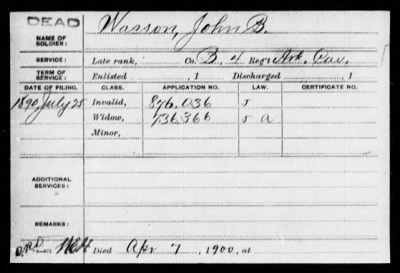 DEAD
Wasson, John B.
NAME OF SOLDIER:
SERVICE: Late rank, Co. B, 4 Reg't Ark. Cav.
TERM OF SERVICE: Enlisted , 1 Discharged , 1
DATE OF FILING. CLASS. APPLICATION NO. LAW. CERTIFICATE NO.
1890, July 25 Invalid, 876,036 J
Widow, 736,366 J A
Minor,
ADDITIONAL SERVICES:
REMARKS:
Died Apr 7, 1900, at